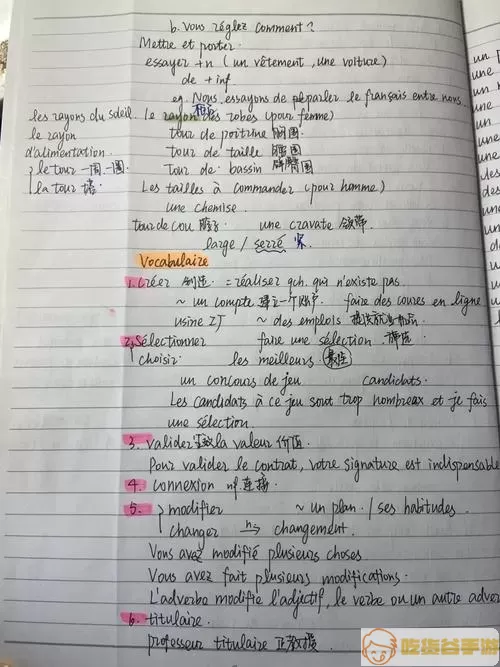 b. Vous réglez comment ?
Mettre et porter.
essayer + n (un vêtement, une voiture)
de + inf
eg. Nous essayons de péparler le français entre nous.
les rayons du soleil. le rayon des robes (pour femme)
le rayon tour de poitrine 胸围
d'alimentation. tour de taille 腰围
le tour 一周 一圈 Tour de bassin 臀围
la tour 塔 Les tailles à commander (pour homme)
une chemise.
tour de cou une cravate 领带
large / serré 紧.
Vocabulaire
1. Créer 创造. = réaliser qch. qui n'existe pas.
~ un compte 建立一个账户 faire des cours en ligne
usine 工厂 ~ des emplois 提供就业
2. Sélectionner faire une sélection. 筛选
choisir. les meilleurs.
un concours de jeu candidats.
Les candidats à ce jeu sont trop nombreux et je fais
une sélection.
3. valider 生效 la valeur 价值.
Pour valider le contrat, votre signature est indispensable
4. connexion nf 连接.
5. modifier ~ un plan. / ses habitudes.
changer n⇒ changement.
Vous avez modifié plusieurs choses.
Vous avez fait plusieurs modifications.
L'adverbe modifie l'adjectif, le verbe ou un autre adver
6. titulaire.
professeur titulaire 正教授
un
une
des
des
un
un
une
吃货谷手游